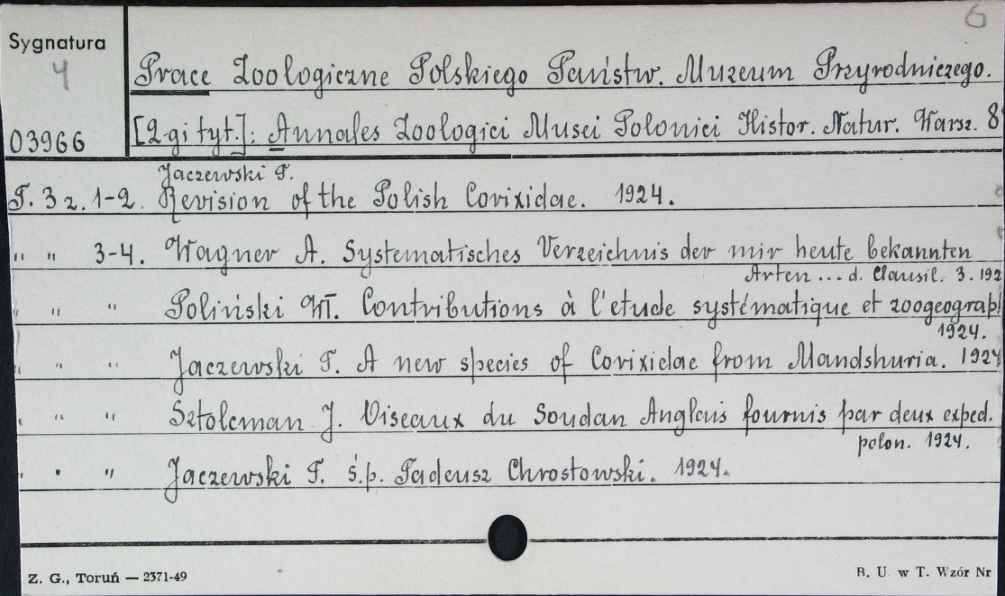 6
Sygnatura
4
03966
Prace Zoologiczne Polskiego Państw. Muzeum Przyrodniczego.
[2-gi tyt.]: Annales Zoologici Musei Polonici Histor. Natur. Warsz. 8
Jaczewski T.
T. 3 z. 1-2. Revision of the Polish Corixidae. 1924.
" " 3-4. Wagner A. Systematisches Verzeichnis der mir heute bekannten
Arten ... d. Clausil. 3. 192
" " " Poliński Wł. Contributions à l'etude systématique et zoogeograp
1924.
" " " Jaczewski T. A new species of Corixidae from Mandshuria. 1924
" " " Sztolcman J. Oiseaux du Soudan Anglais fournis par deux exped.
polon. 1924.
" " " Jaczewski T. ś.p. Tadeusz Chrostowski. 1924.
Z. G., Toruń — 2371-49
B. U. w T. Wzór Nr